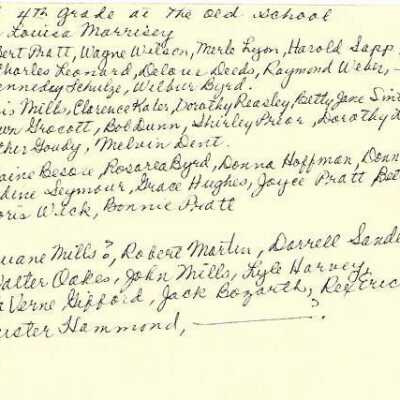 4th grade at the old school
Louisa Marrisey
bert Pratt, Wagne Wilson, Merle Lyon, Harold Sapp
Charles Leonard, Delove Deeds, Raymond Weber,
Kennedy Schulze, Wilbur Byrd.
is Mills, Clarence Kater, Dorothy Peasley, Betty Jane Sim
wn Grocott, Bob Dunn, Shirley Prior, Dorothy
ther Goudy, Melvin Dent.
aine Besore, Rosarea Byrd, Donna Hoffman, Donn
dine Seymour, Grace Hughes, Joyce Pratt Bet
oris Wick, Bonnie Pratt
uane Mills?, Robert Martin, Darrell Sande
Walter Oakes, John Mills, Lyle Harvey,
Verne Gifford, Jack Bozarth, Rex Eric
uster Hammond, ?